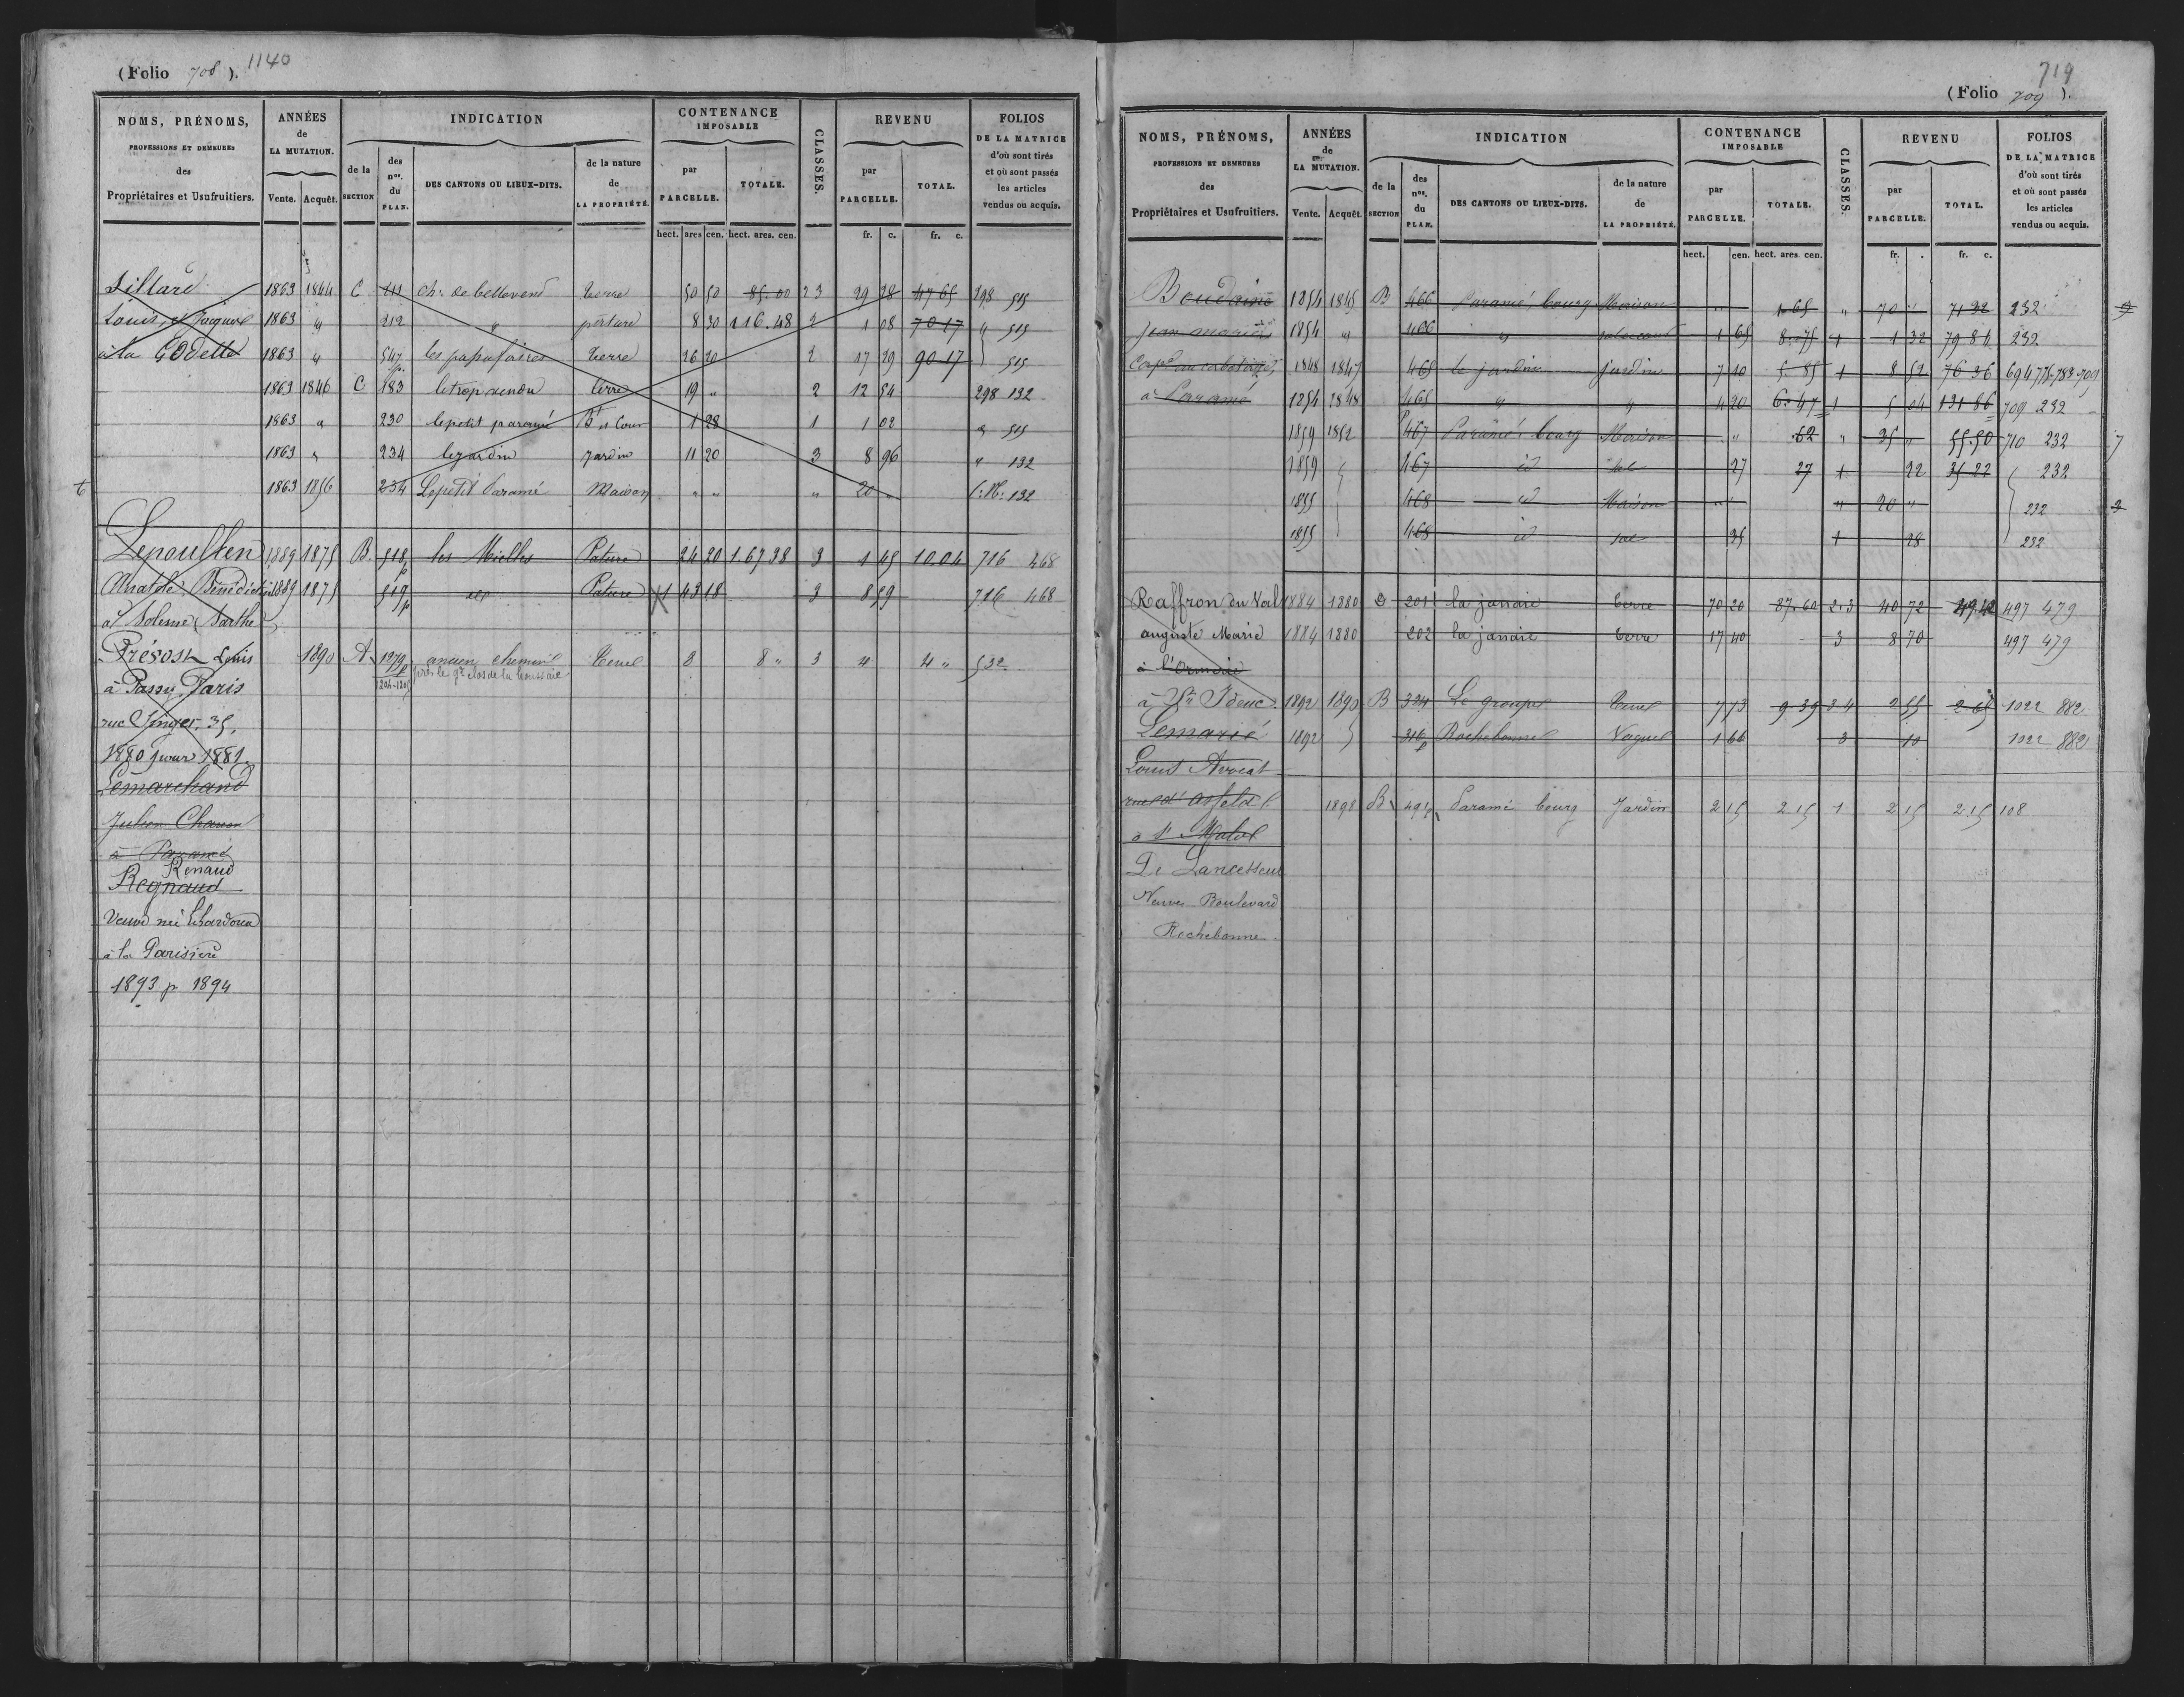 (Folio 708). 1140
NOMS, PRÉNOMS, PROFESSIONS ET DEMEURES des Propriétaires et Usufruitiers.
ANNÉES de LA MUTATION. Vente. Acquêt.
INDICATION de la SECTION des nos. du PLAN. DES CANTONS OU LIEUX-DITS. de la nature de LA PROPRIÉTÉ.
CONTENANCE IMPOSABLE par PARCELLE. TOTALE.
CLASSES.
REVENU par PARCELLE. TOTAL.
FOLIOS DE LA MATRICE d'où sont tirés et où sont passés les articles vendus ou acquis.
hect. ares cen. hect. ares. cen. fr. c. fr. c.
1863 1844 C 211 Ch. de bellevend terre 50 50 85.00 2 3 29 28 47 65 298 515
Louis, et Jacques 1863 " 212 " pâture 8 30 116.48 2 1 08 70 17 " 515
à la Godelle 1863 " 547 p. terre 26 20 2 17 29 90 17 515
1863 1846 C 183 terre 19 " 2 12 54 298 132
1863 " 230 le petit paramé Bt et Cour 1 28 1 1 02 " 515
1863 " 234 le jardin jardin 11 20 3 8 96 " 132
1863 1856 234 Le petit Paramé Maison " " " 20 " 132
1889 1875 B 518 p les Mielles Pature 24 20 1.67 38 3 1 45 10.04 716 468
Anatole Bénédictin 1889 1875 519 p Pature 1 43 18 3 8 59 716 468
à Solesme (Sarthe)
Prévost Louis 1890 A 1979 p ancien chemin Terre 8 8 " 3 4 4 " 532
près le gd clos de la houssaie
à Passy, Paris
rue Singer, 35,
1880 pour 1881.
Lemarchand
Julien
à Paramé
Renaud
Regnaud
Veuve née
à la Parisière
1893 p 1894
719
(Folio 709).
NOMS, PRÉNOMS, PROFESSIONS ET DEMEURES des Propriétaires et Usufruitiers.
ANNÉES de LA MUTATION. Vente. Acquêt.
INDICATION de la SECTION des nos. du PLAN. DES CANTONS OU LIEUX-DITS. de la nature de LA PROPRIÉTÉ.
CONTENANCE IMPOSABLE par PARCELLE. TOTALE.
CLASSES.
REVENU par PARCELLE. TOTAL.
FOLIOS DE LA MATRICE d'où sont tirés et où sont passés les articles vendus ou acquis.
hect. cen. hect. ares. cen. fr. . fr. c.
1854 1845 B 466 Paramé, bourg Maison " " 1 65 " 70 " 71 32 232
Jean marie 1854 " 466 " sol et cour 1 65 8.75 1 1 32 79 84 232
1848 1847 465 le jardin jardin 7 10 5 85 1 8 52 76 36
à Paramé 1854 1848 465 " " 4 20 6.47 1 5 04 131 86 709 232
1859 1852 467 Paramé, bourg Maison " " 62 " 35 " 55.50 710 232
1859 467 id sol 27 27 1 22 35 22 232
1855 468 id Maison " " " 20 " 232
1855 468 id sol 35 1 28 232
Raffron du Val 1884 1880 D 201 la janaie terre 70 20 87.60 2.3 40 72 49.42 497 479
auguste Marie 1884 1880 202 la janaie terre 17 40 3 8 70 497 479
à l'Ormerie
à St Ideuc 1892 1890 B 324 Terre 7 73 9 39 3 4 2 55 2 65 1022 882
Lemarié 1892 316 p Rochebonne Vague 1 66 3 10 1022 882
Louis Avocat
rue d'Asfeld 6 1898 B 491 p Paramé bourg Jardin 2 15 2 15 1 2 15 2 15 108
à St Malo
Veuve Boulevard
Rochebonne